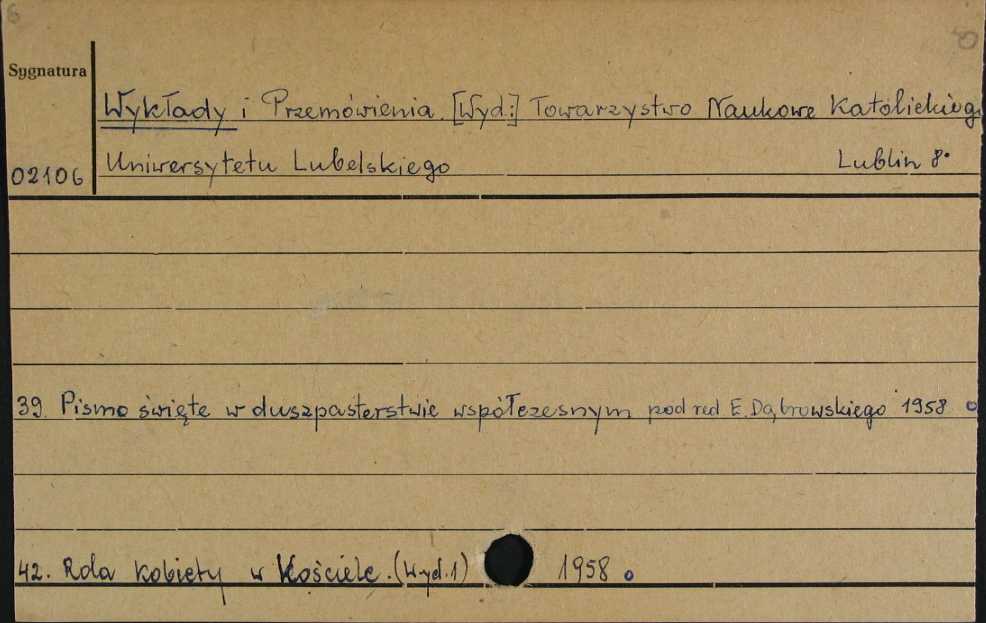 Sygnatura
Wykłady i Przemówienia. [Wyd:] Towarzystwo Naukowe Katolickiego
02106 Uniwersytetu Lubelskiego Lublin 8°
39. Pismo święte w duszpasterstwie współczesnym pod red E. Dąbrowskiego 1958
42. Rola kobiety w Kościele. (Wyd. 1) 1958